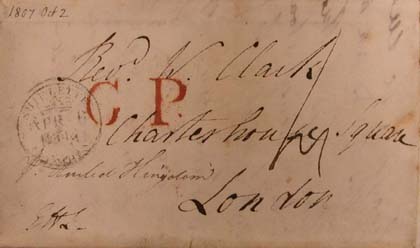 1807 Oct 2
Revd. W. Clark
C P.
Charterhouse Square
United Kingdom
London